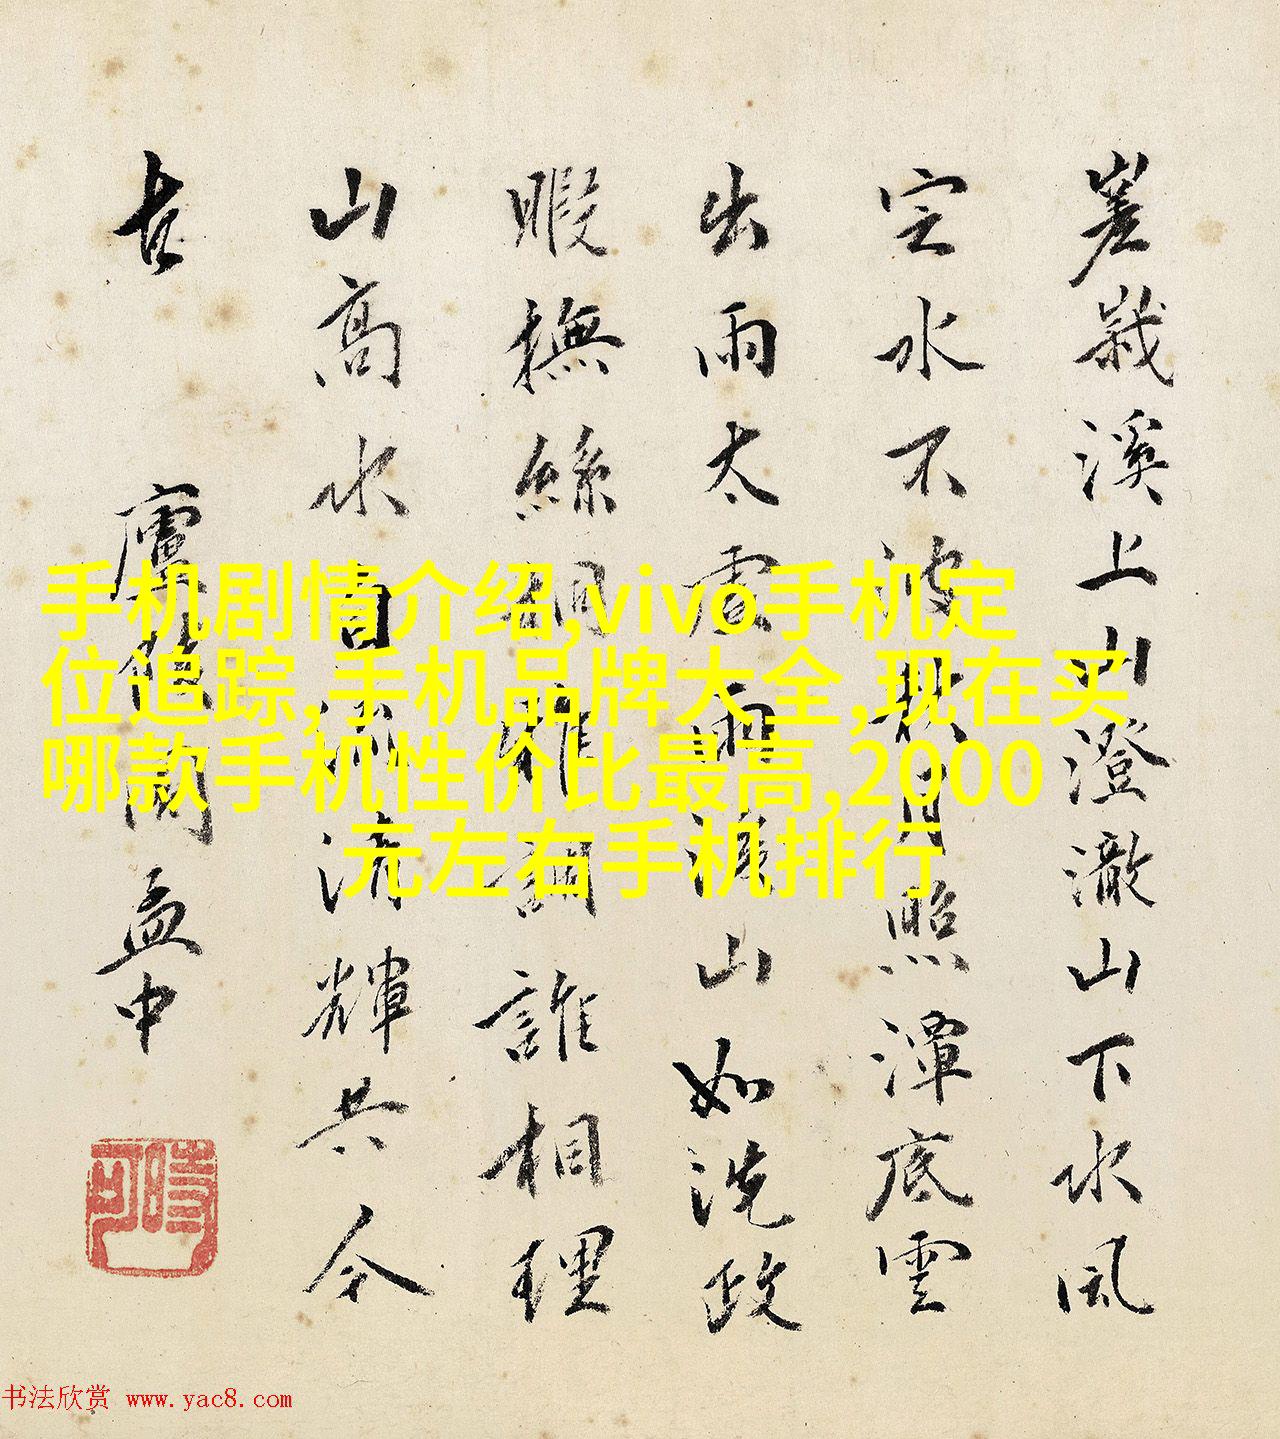 嵳峩溪上山澄澈山下水風
定水不波秋月照潭底雲
出雨太虛雨濯山如洗政
暇撫絲桐雅調誰相理
山高水自流清輝共今
古
廬陵閻孟中
時可
手机剧情介绍,vivo手机定
位追踪,手机品牌大全,现在买
哪款手机性价比最高,2000
元左右手机排行
书法欣赏 www.yac8.com